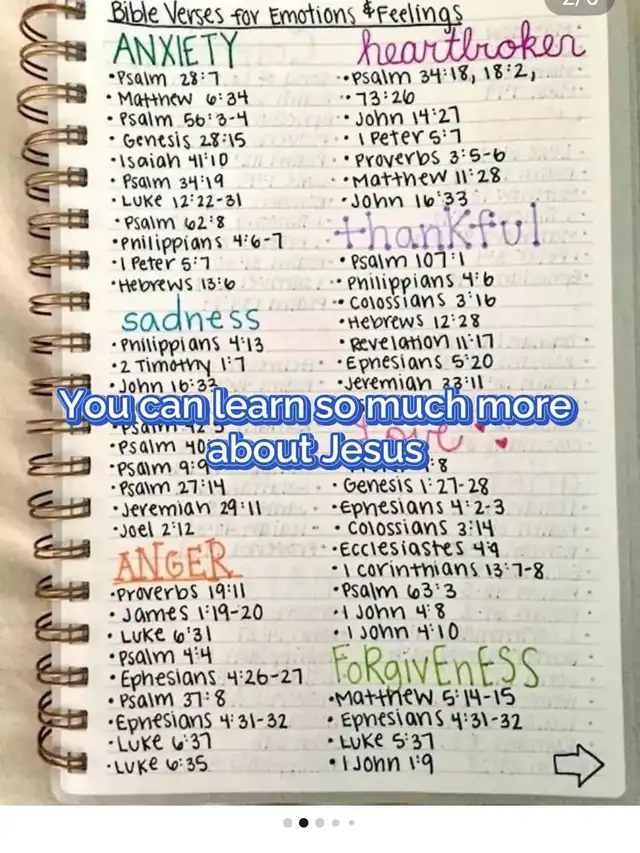 Bible Verses for Emotions & Feelings
ANXIETY
•Psalm 28:7
•Matthew 6:34
•Psalm 56:3-4
•Genesis 28:15
•Isaiah 41:10
•Psalm 34:19
•Luke 12:22-31
•Psalm 62:8
•Philippians 4:6-7
•1 Peter 5:7
•Hebrews 13:6
sadness
•Philippians 4:13
•2 Timothy 1:7
•John 16:33
Psalm 42:5
•Psalm 40
•Psalm 9:9
•Psalm 27:14
•Jeremiah 29:11
•Joel 2:12
ANGER
•Proverbs 19:11
•James 1:19-20
•Luke 6:31
•Psalm 4:4
•Ephesians 4:26-27
•Psalm 37:8
•Ephesians 4:31-32
•Luke 6:37
•Luke 6:35
heartbroken
•Psalm 34:18, 18:2,
•73:26
•John 14:27
•1 Peter 5:7
•Proverbs 3:5-6
•Matthew 11:28
•John 16:33
thankful
•Psalm 107:1
•Philippians 4:6
•Colossians 3:16
•Hebrews 12:28
•Revelation 11:17
•Ephesians 5:20
•Jeremiah 33:11
Love
:8
•Genesis 1:27-28
•Ephesians 4:2-3
•Colossians 3:14
•Ecclesiastes 4:9
•1 Corinthians 13:7-8
•Psalm 63:3
•1 John 4:8
•1 John 4:10
FoRgivEnESS
•Matthew 5:14-15
•Ephesians 4:31-32
•Luke 5:37
•1 John 1:9
You can learn so much more
about Jesus